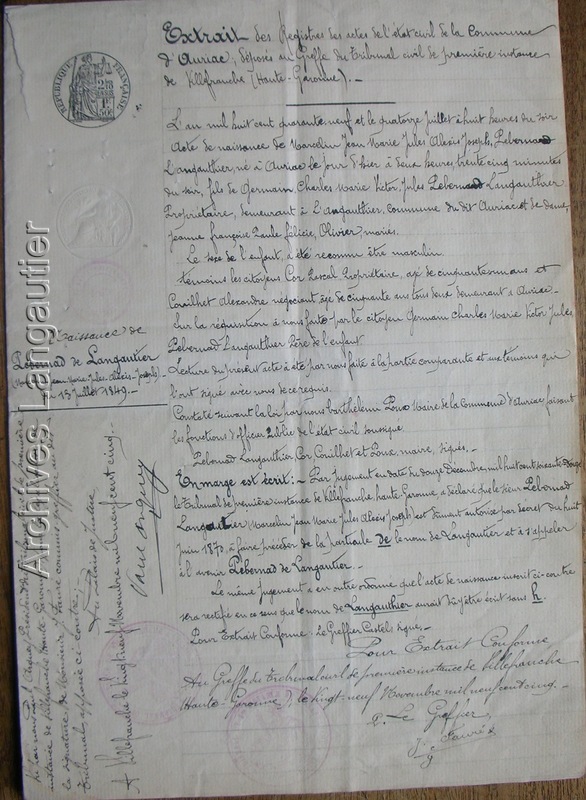 Extrait des Registres des actes de l'état civil de la Commune
d'Auriac, déposés au Greffe du Tribunal civil de première instance
de Villefranche (Haute-Garonne). _
RÉPUBLIQUE FRANÇAISE
L'an mil huit cent quarante neuf et le quatorze Juillet à huit heures du soir
Acte de naissance de Marcelin Jean Marie Jules Alexis Joseph, Lebernad
Langauthier, né à Auriac le jour d'hier à deux heures, trente cinq minutes
du soir, fils de Germain, Charles Marie Victor, Jules Lebernad Langauthier
Propriétaire, demeurant à L'Angauthier, commune du dit Auriac et de dame,
Jeanne françoise Paule félicie, Olivier, mariés.
Le sexe de l'enfant, a été reconnu être masculin.
témoins les citoyens Cor Pascal Propriétaire, agé de cinquante ans et
Couilhet Alexandre négociant, âgé de cinquante ans tous deux demeurant à Auriac.
Sur la réquisition à nous faite par le citoyen Germain Charles Marie Victor Jules
Lebernad Langauthier Père de l'enfant
Lecture du présent acte a été par nous faite à la partie comparante et aux témoins qui
l'ont signé avec nous de ce requis.
Constaté suivant la loi par nous Barthélemy Poux Maire de la Commune d'Auriac faisant
les fonctions d'officier Public de l'état civil soussigné.
Lebernad Langauthier, Cor, Couilhet et Poux, maire, signés. _
En marge est écrit: _ Par Jugement en date du douze Décembre mil huit cent soixante-douze
le tribunal de première instance de Villefranche, haute-Garonne, a déclaré que le sieur Lebernad
Langautier (Marcelin Jean Marie Jules Alexis Joseph) est dument autorisé par décret du huit
Juin 1870, à faire précéder de la particule de le nom de Langautier et à s'appeler
à l'avenir Lebernad de Langautier. _
Le même Jugement a en outre ordonné que l'acte de naissance inscrit ci-contre
sera rectifié en ce sens que le nom de Langauthier aurait dû être écrit sans h.
Pour Extrait Conforme: Le Greffier Castel signé. _
Pour Extrait Conforme
Au Greffe du Tribunal civil de première instance de Villefranche
(Haute-Garonne), le vingt-neuf Novembre mil neuf cent cinq. _
P. Le Greffier
Naissance de
Lebernad de Langautier
(Jean Marie Jules Alexis Joseph)
13 Juillet 1849.
instance de Villefranche Haute-Garonne
la signature de Monsieur
Tribunal apposée ci-contre,
Au Palais de Justice
A Villefranche le vingt neuf Novembre mil neuf cent cinq. _
Archives Langautier